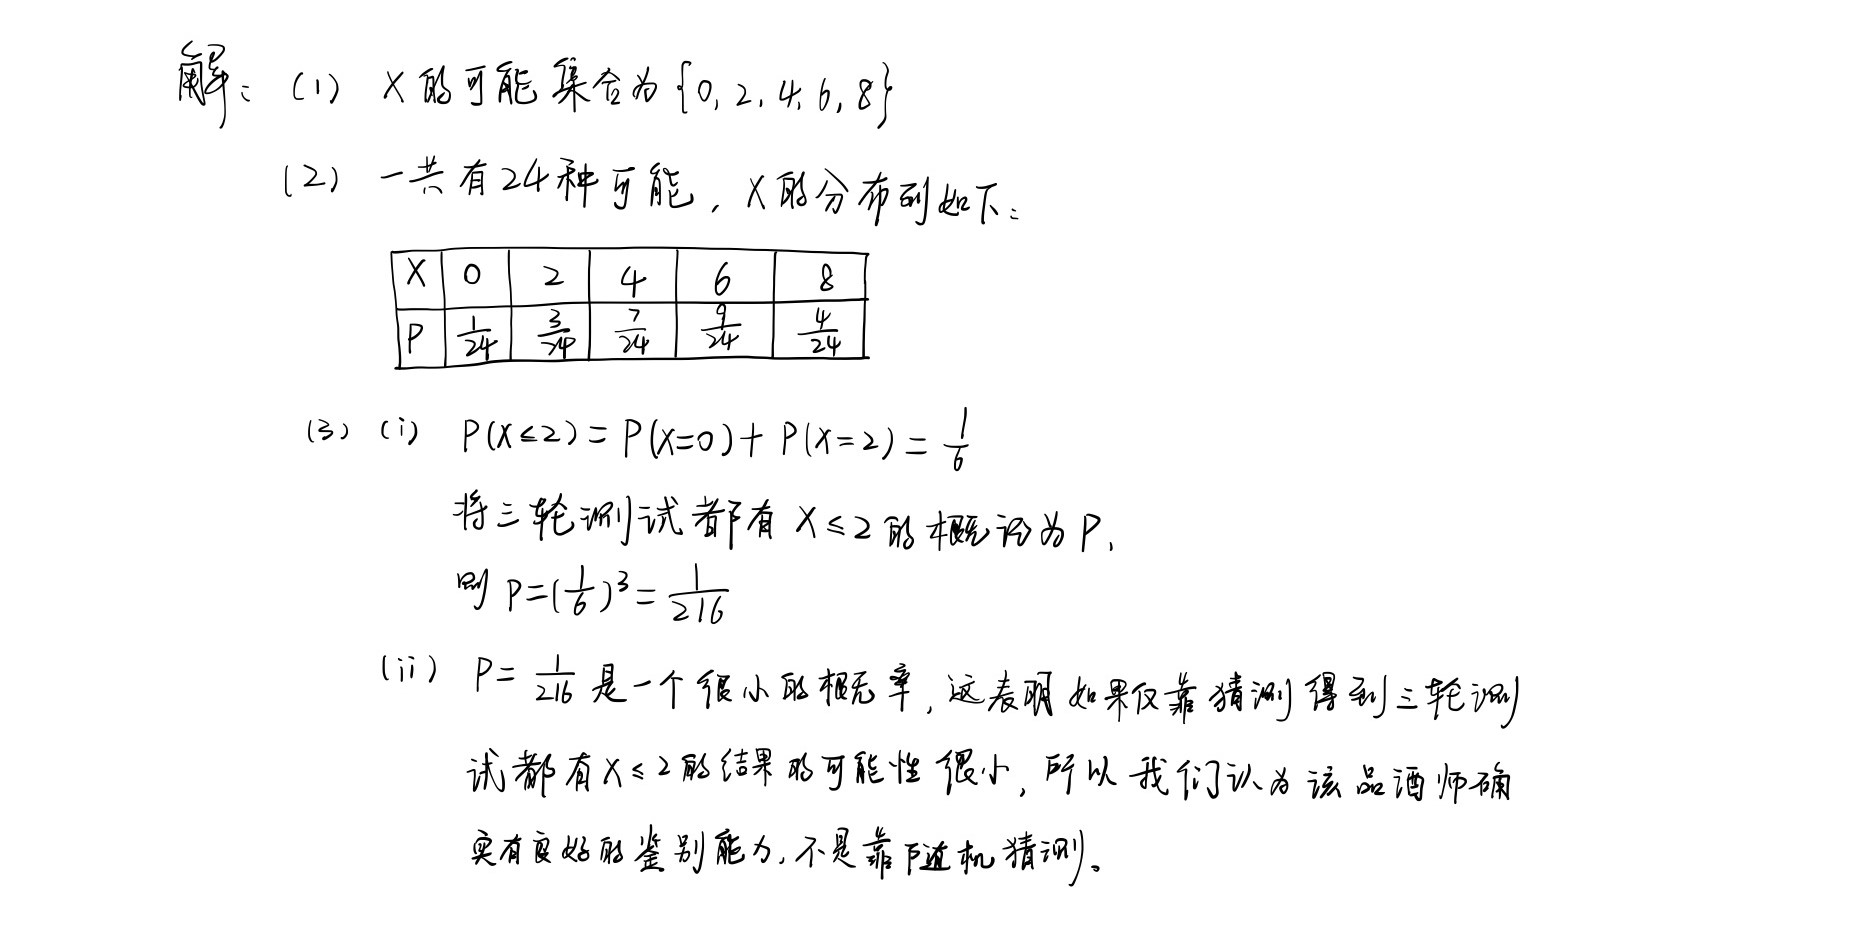 解：(1) X的可能集合为{0, 2, 4, 6, 8}
(2) 一共有24种可能，X的分布列如下：
X 0 2 4 6 8
P 1/24 3/24 7/24 9/24 4/24
(3) (i) P(X≤2)=P(X=0)+P(X=2)=1/6
将三轮测试都有X≤2的概记为P，
则P=(1/6)³=1/216
(ii) P=1/216是一个很小的概率，这表明如果仅靠猜测得到三轮测
试都有X≤2的结果的可能性很小，所以我们认为该品酒师确
实有良好的鉴别能力，不是靠随机猜测。